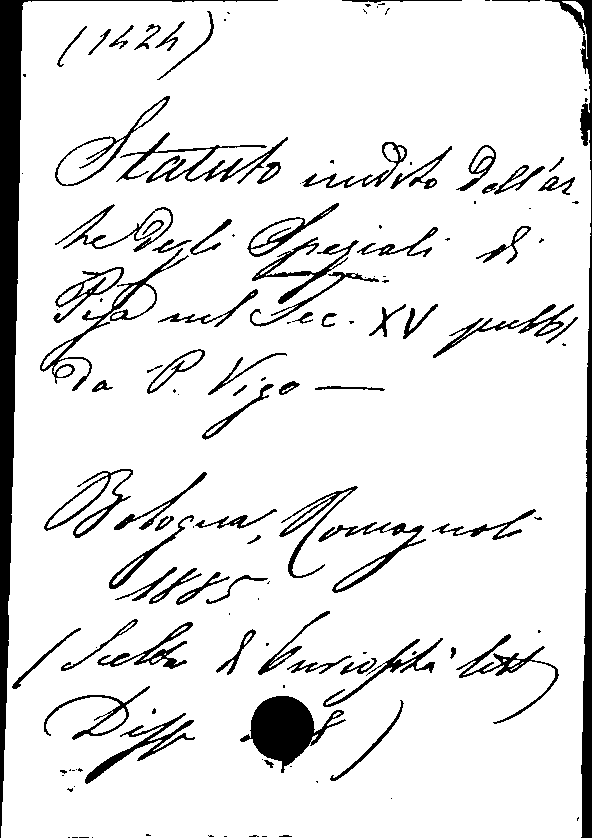 (1424)
Statuto inedito dell'ar-
te degli Speziali di
Pisa nel Sec. XV pubbl.
da P. Vigo —
Bologna, Romagnoli
1885
(Scelta di Curiosità lett
Disp 8)